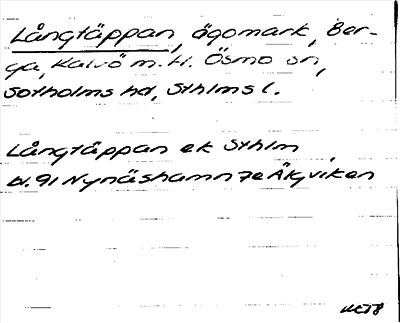 Långtäppan, ägomark, Ber-
ga, Kalvö m.fl. Ösmo sn,
Sotholms hd, Sthlms l.
Långtäppan ek Sthlm
bl. 91 Nynäshamn 7e Älgviken